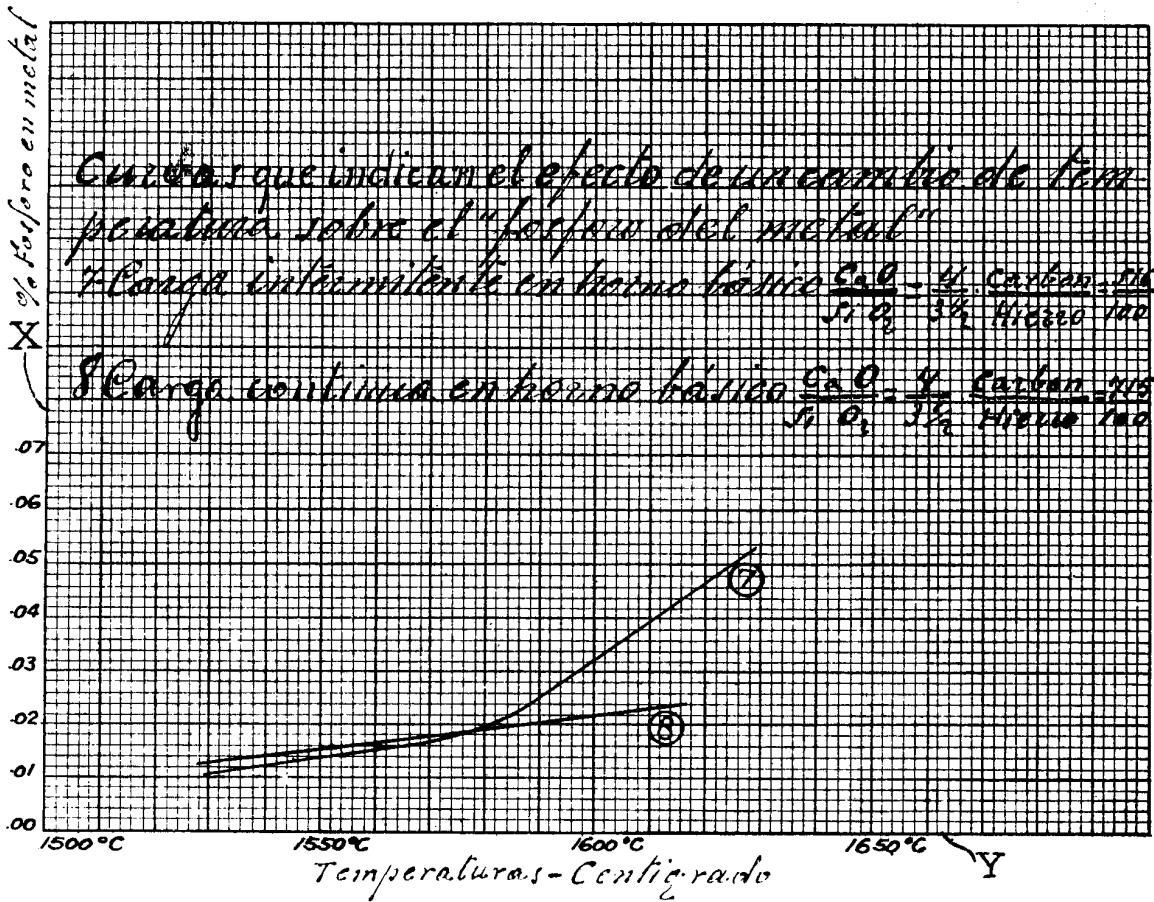 % Fosforo en metal
X
Curvas que indican el efecto de un cambio de tem-
peratura sobre el "fosforo del metal"
7-Carga intermitente en horno básico CaO/SiO₂ = 4/3½ Carbon/Hierro =
8 Carga continua en horno básico CaO/SiO₂ = 4/3½ Carbon/Hierro =
.07
.06
.05
.04
.03
.02
.01
.00
7
8
1500°C 1550°C 1600°C 1650°C
Y
Temperaturas-Centigrado